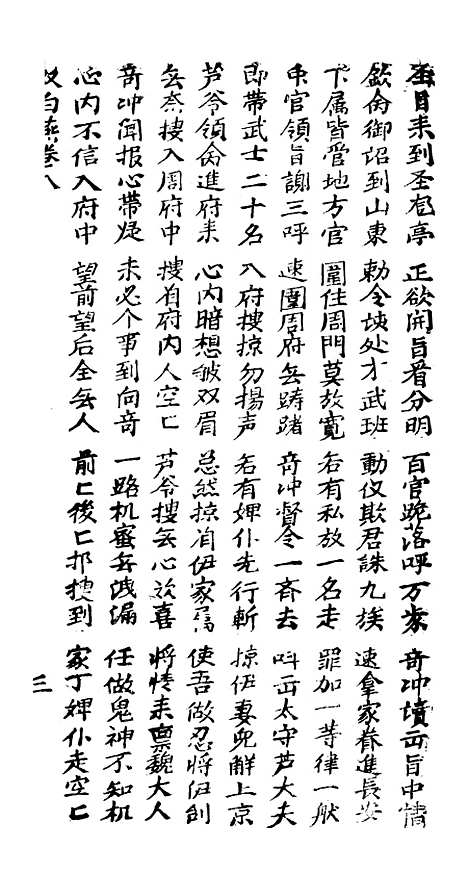 目来到圣包亭 正欲開旨看分明 百官跪落呼万岁 奇冲旨中情
欽命御詔到山東 勅令该处才武班 動仅欺君誅九族 速拿家眷進長安
下属皆管地方官 圍住周門莫放寬 若有私放一名走 罪加一等律一般
中官領旨謝三呼 速圍周府無踌躇 奇冲督令一斉去 叫出太守芦大夫
即带武士二十名 入府搜掠勿揚声 若有婢仆先行斬 掠伊妻兒解上京
芦爷領命進府来 心内暗想皱双眉 总然掠有伊家属 使吾做忍將伊刣
無奈搜入周府中 搜看府内人空匕 芦爷搜無心欢喜 將情来禀魏大人
奇冲闻报心带疑 未必个事到向奇 一路机蜜無洩漏 任做鬼神不知机
心内不信入府中 望前望后全無人 前匕後匕都搜到 家丁婢仆走空匕
双白燕卷八 三